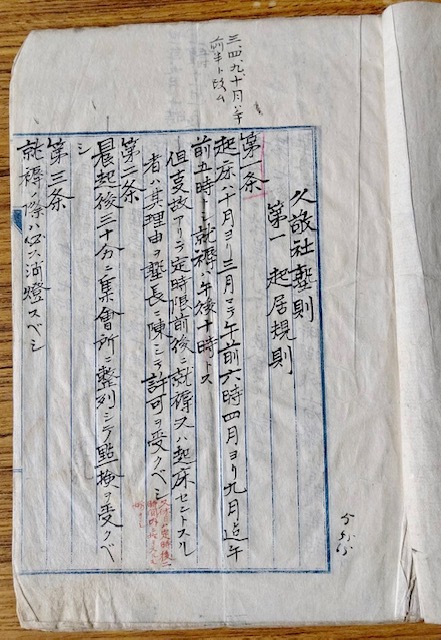 三、四、九、十月ハ午
前半ト改ム
久敬社塾則
第一 起居規則
第一条
起床ハ十月ヨリ三月マテ午前六時四月ヨリ九月迄午
前五時トシ就褥ハ午後十時トス
但事故アリテ定時限前後ニ就褥又ハ起床セントスル
者ハ其理由ヲ塾長ニ陳シテ許可ヲ受クベシ
第二条
晨起後三十分ニ集會所ニ整列シテ點檢ヲ受クベ
シ
第三条
就褥ノ際ハ必ス消燈スベシ